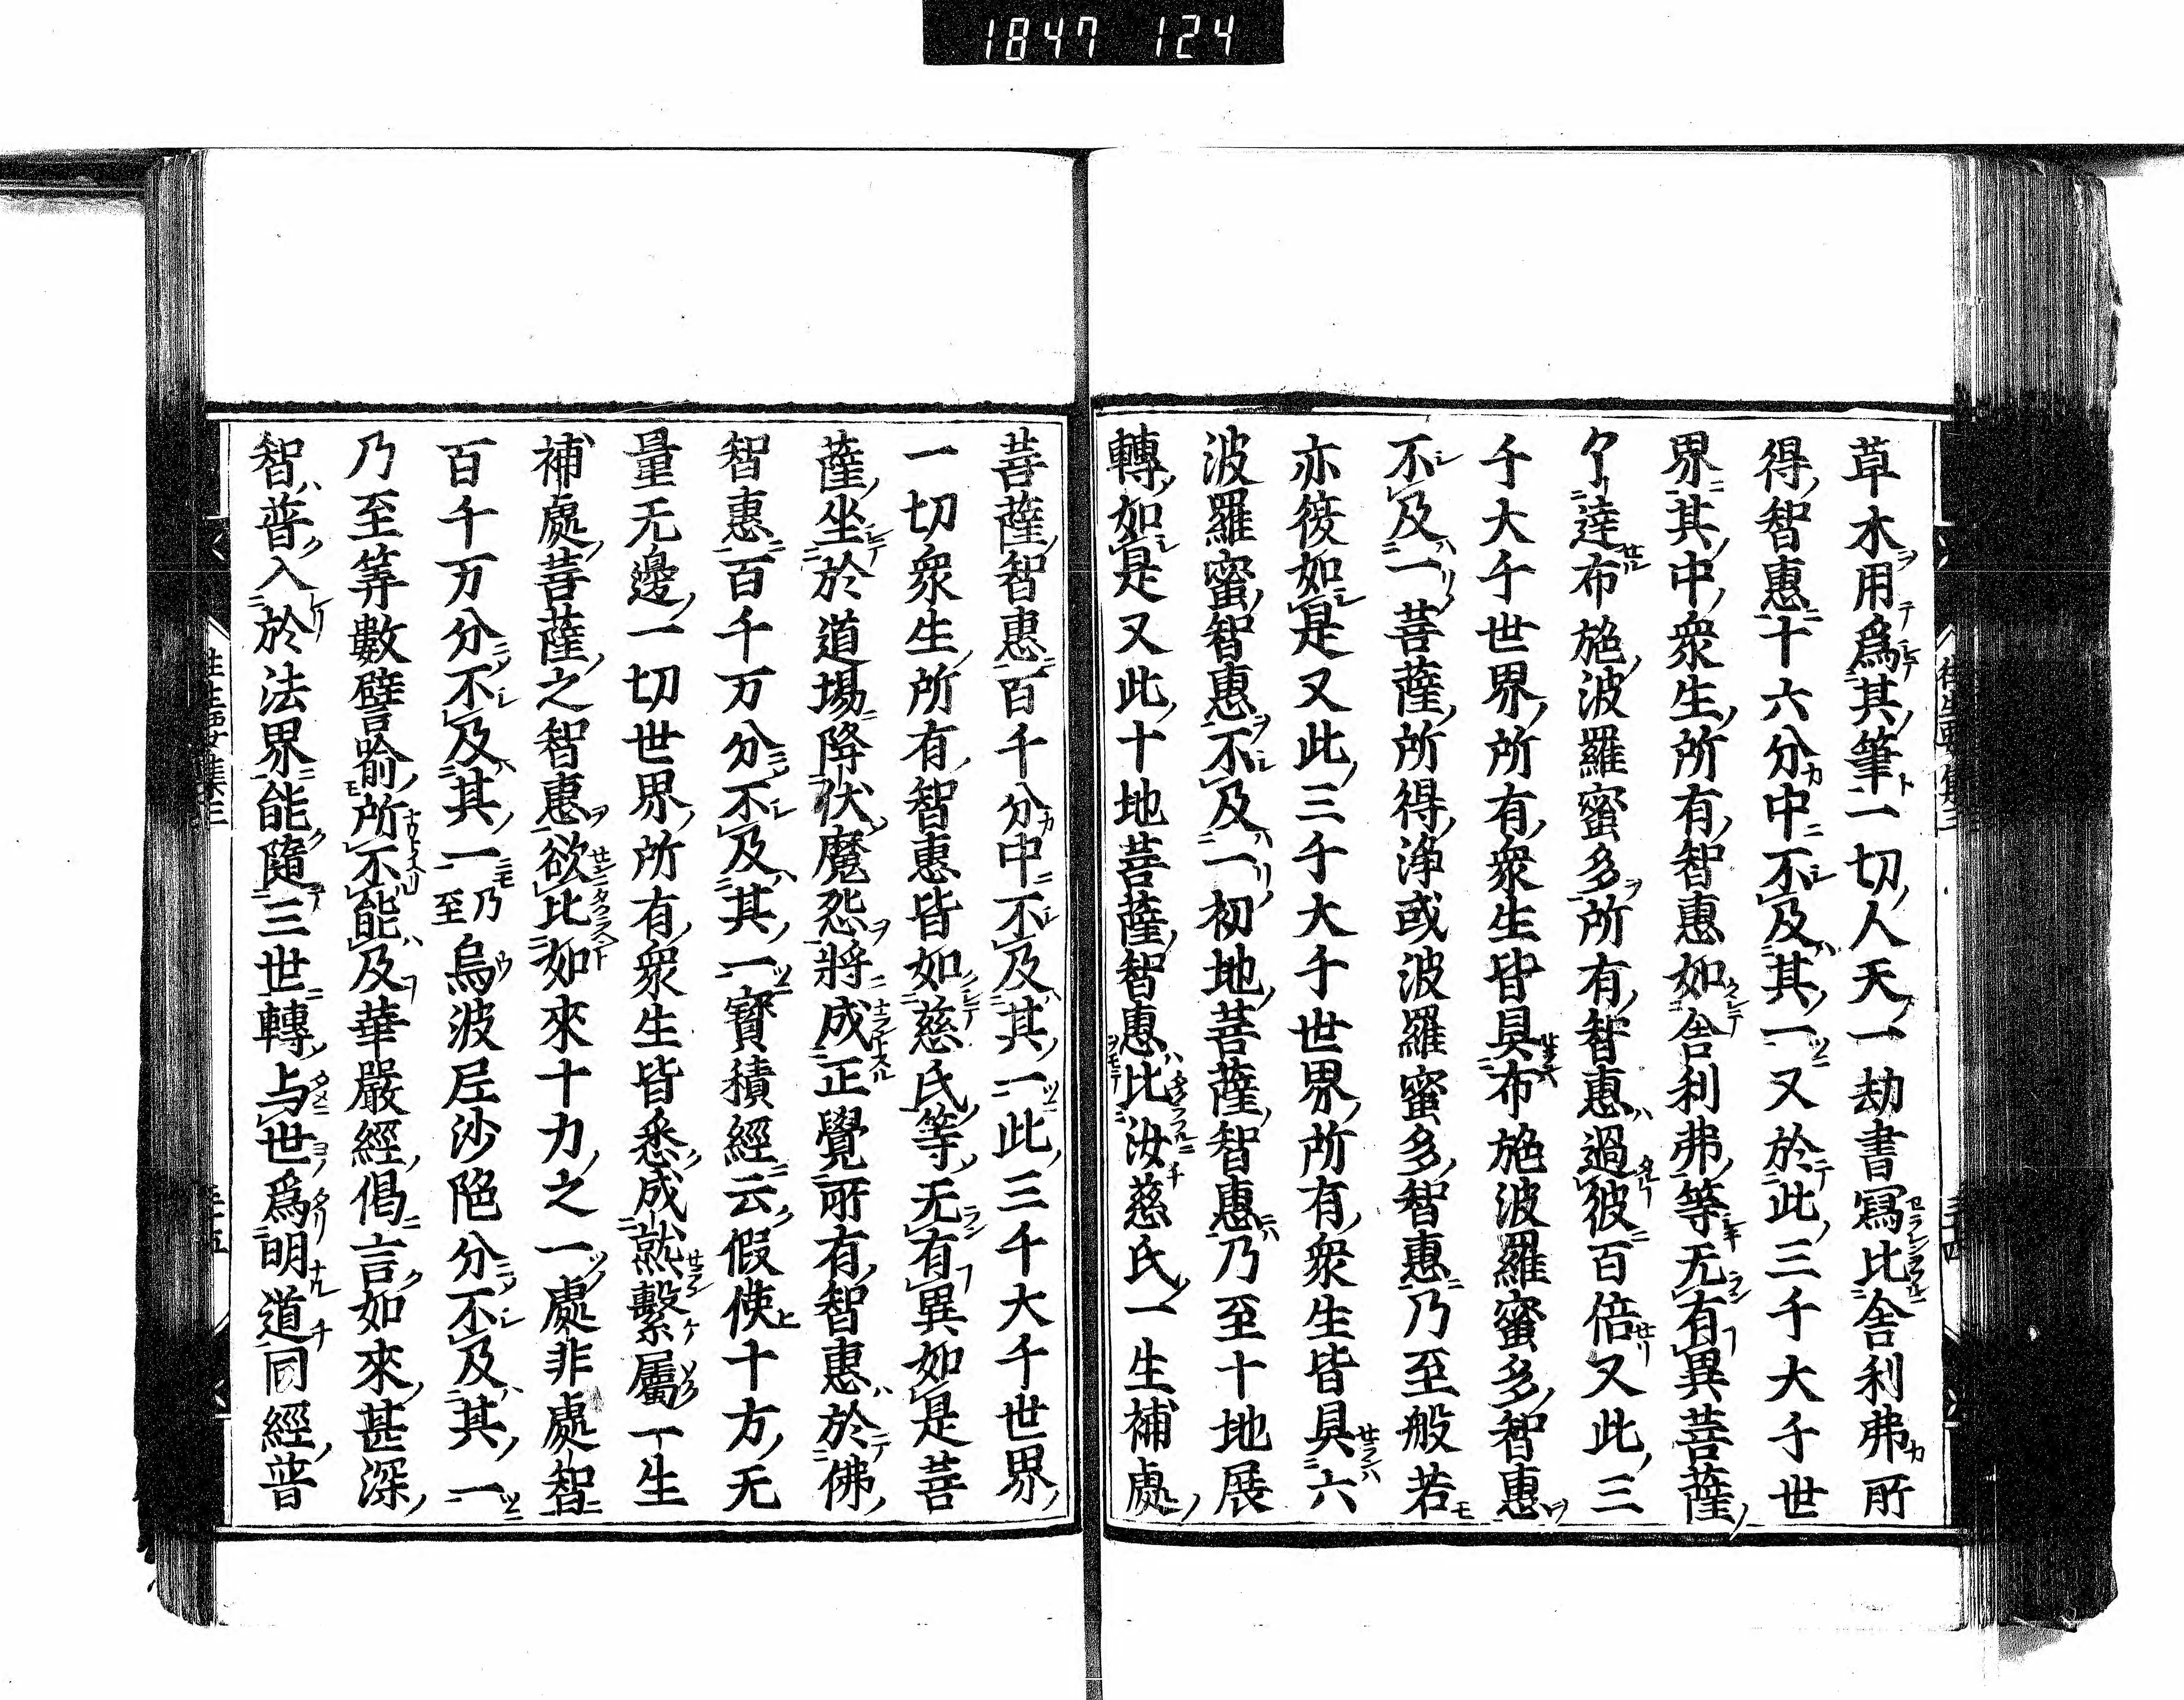 1847 124
草木用爲其筆一切人天一劫書寫比舎利弗所
得智惠十六分中不及其一又於此三千大千世
界其中衆生所有智惠如舎利弗等无有異菩薩
了達布施波羅蜜多所有智惠過彼百倍又此三
千大千世界所有衆生皆具布施波羅蜜多智惠
不及一菩薩所得浄戒波羅蜜多智惠乃至般若
亦復如是又此三千大千世界所有衆生皆具六
波羅蜜智惠不及一初地菩薩智惠乃至十地展
轉如是又此十地菩薩智惠比汝慈氏一生補處
菩薩智惠百千分中不及其一此三千大千世界
一切衆生所有智惠皆如慈氏等无有異如是菩
薩坐於道場降伏魔怨將成正覺所有智惠於佛
智惠百千万分不及其一寳積經云假使十方无
量无邊一切世界所有衆生皆悉成就繫屬一生
補處菩薩之智惠欲比如來十力之一處非處智
百千万分不及其一乃至烏波尼沙陀分不及其一
乃至等數譬喩所不能及華嚴經偈言如來甚深
智普入於法界能隨三世轉与世爲明道同經普
往生要集三